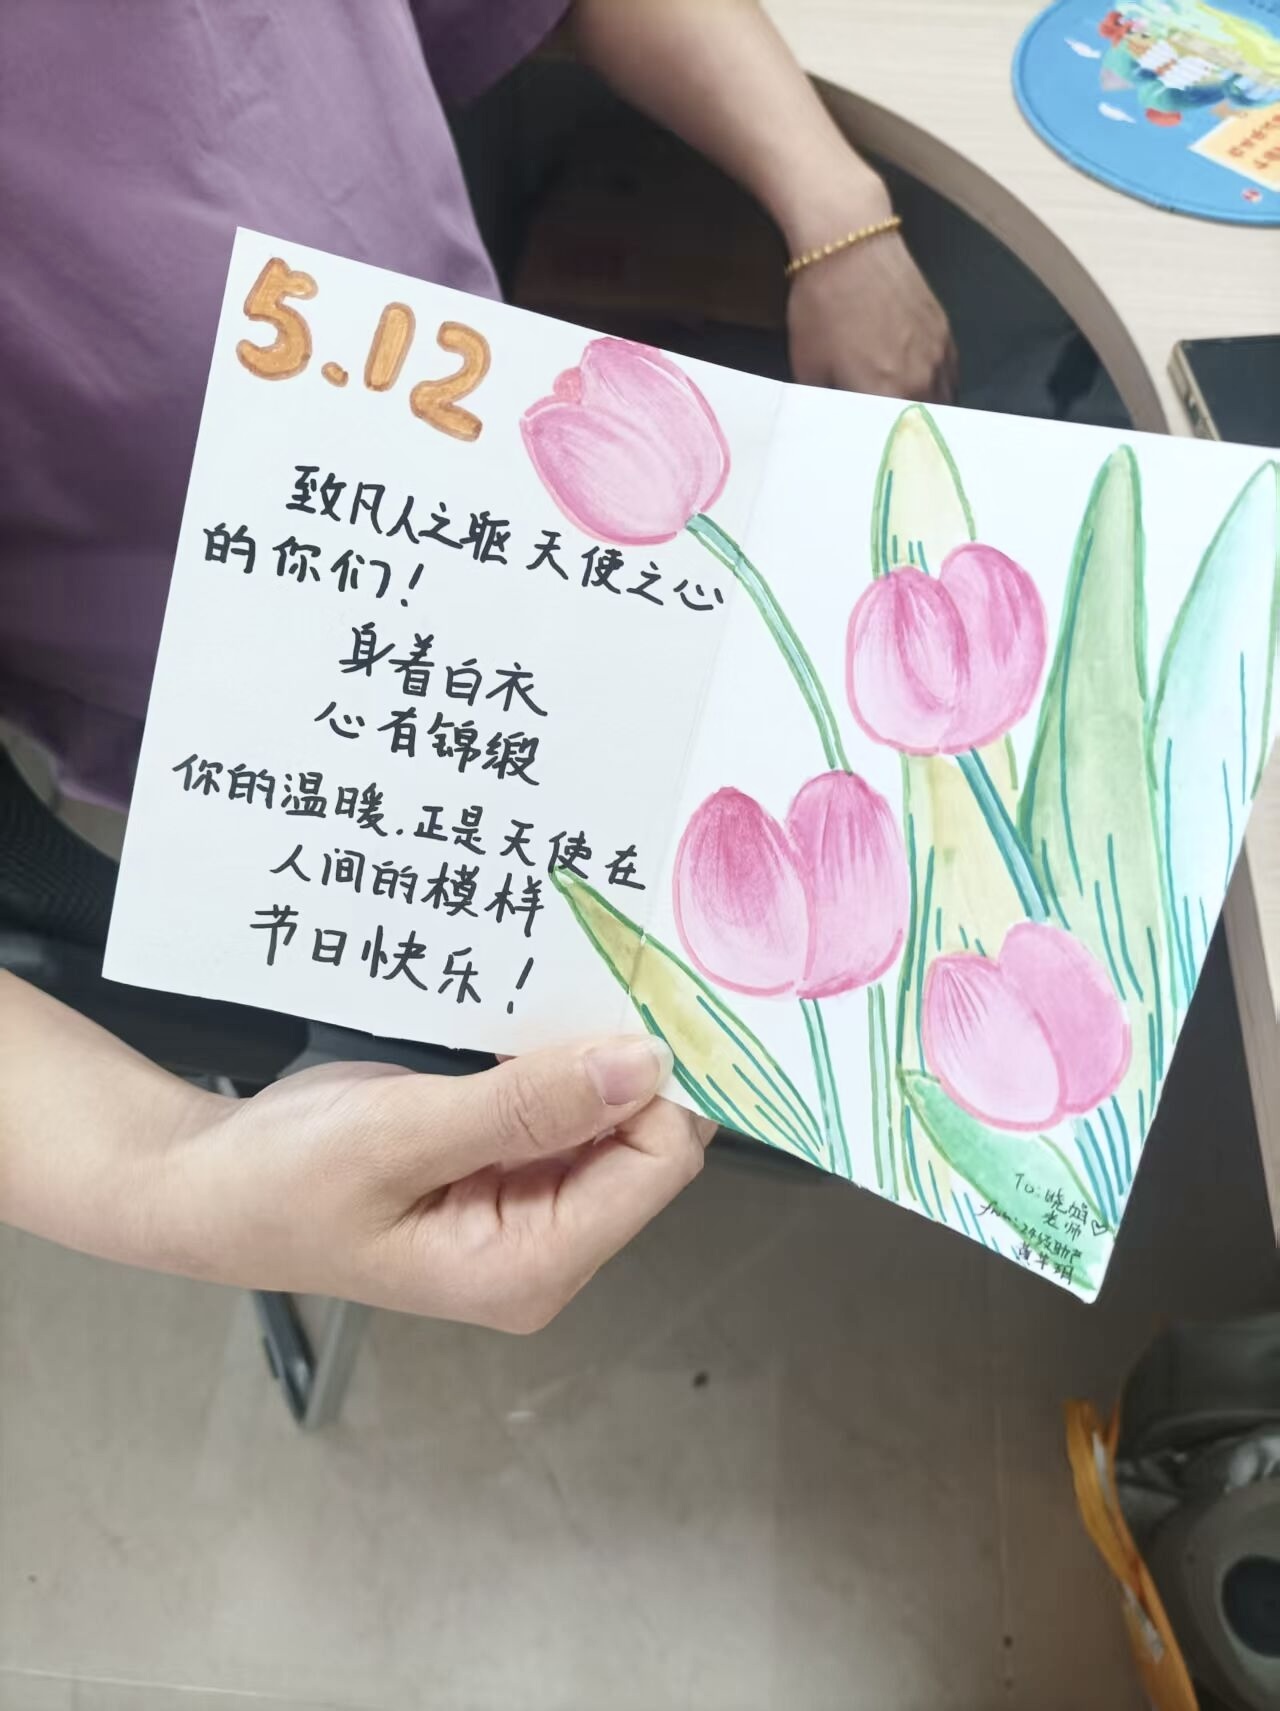 5.12
致凡人之躯 天使之心
的你们！
身着白衣
心有锦缎
你的温暖，正是天使在
人间的模样
节日快乐！
To：晓娟
老师♡
from：24级助产